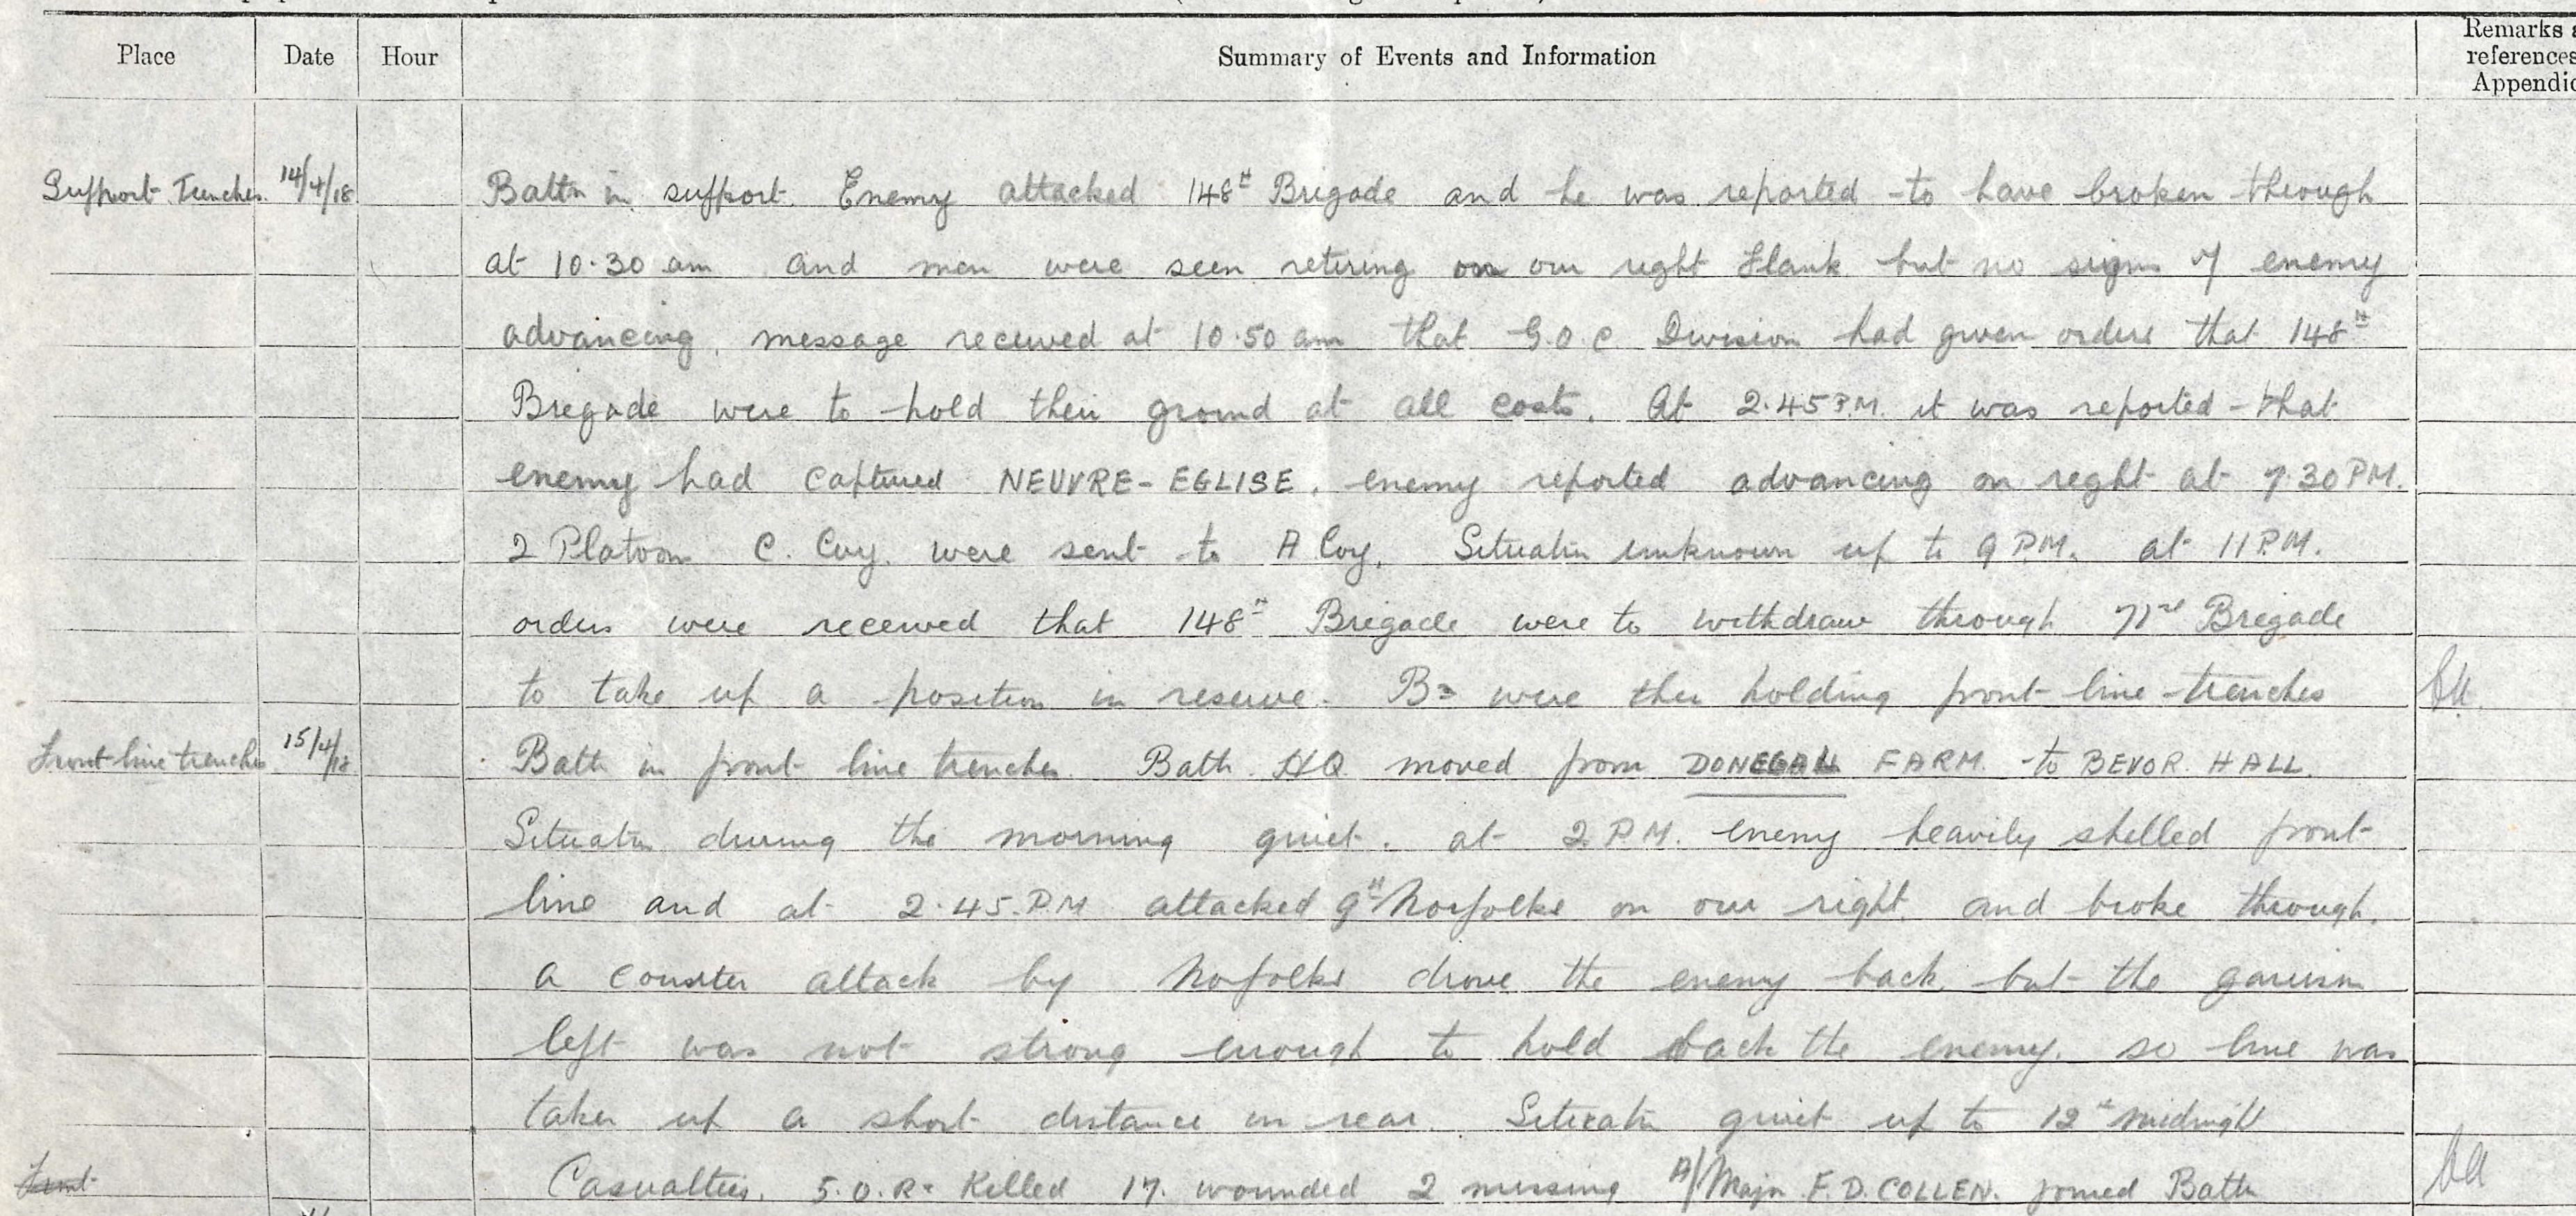 Place Date Hour Summary of Events and Information Remarks
references
Appendic
Support Trenches. 14/4/18 Battn in support. Enemy attacked 148th Brigade and he was reported to have broken through
at 10.30 am and men were seen retiring on our right flank but no signs of enemy
advancing. message received at 10.50 am that G.O.C Division had given orders that 148th
Bregade were to hold their ground at all costs. At 2.45 P.M. it was reported that
enemy had captured NEUVRE-EGLISE. enemy reported advancing on reght at 7.30 PM.
2 Platoon C. Coy. were sent to A Coy. Situatin unknown up to 9 P.M. at 11 P.M.
orders were received that 148th Brigade were to withdraw through 71st Brigade
to take up a position in reserve. Bn were then holding front line trenches
Front line trenches 15/4/18 Battn in front line trenches. Battn HQ moved from DONEGAL FARM. to BEVOR. HALL.
Situatin during the morning quiet. at 2 P.M. enemy heavily shelled front
line and at 2.45. P.M attacked 9th Norfolks on our right and broke through.
a counter attack by Nofolks drove the enemy back but the garrison
left was not strong enough to hold back the enemy. so line was
taken up a short distance in rear. Situatin quiet up to 12th midnight
Front Casualties. 5. O.R. Killed 17. wounded 2 missing A/Major F.D. COLLEN. joined Battn